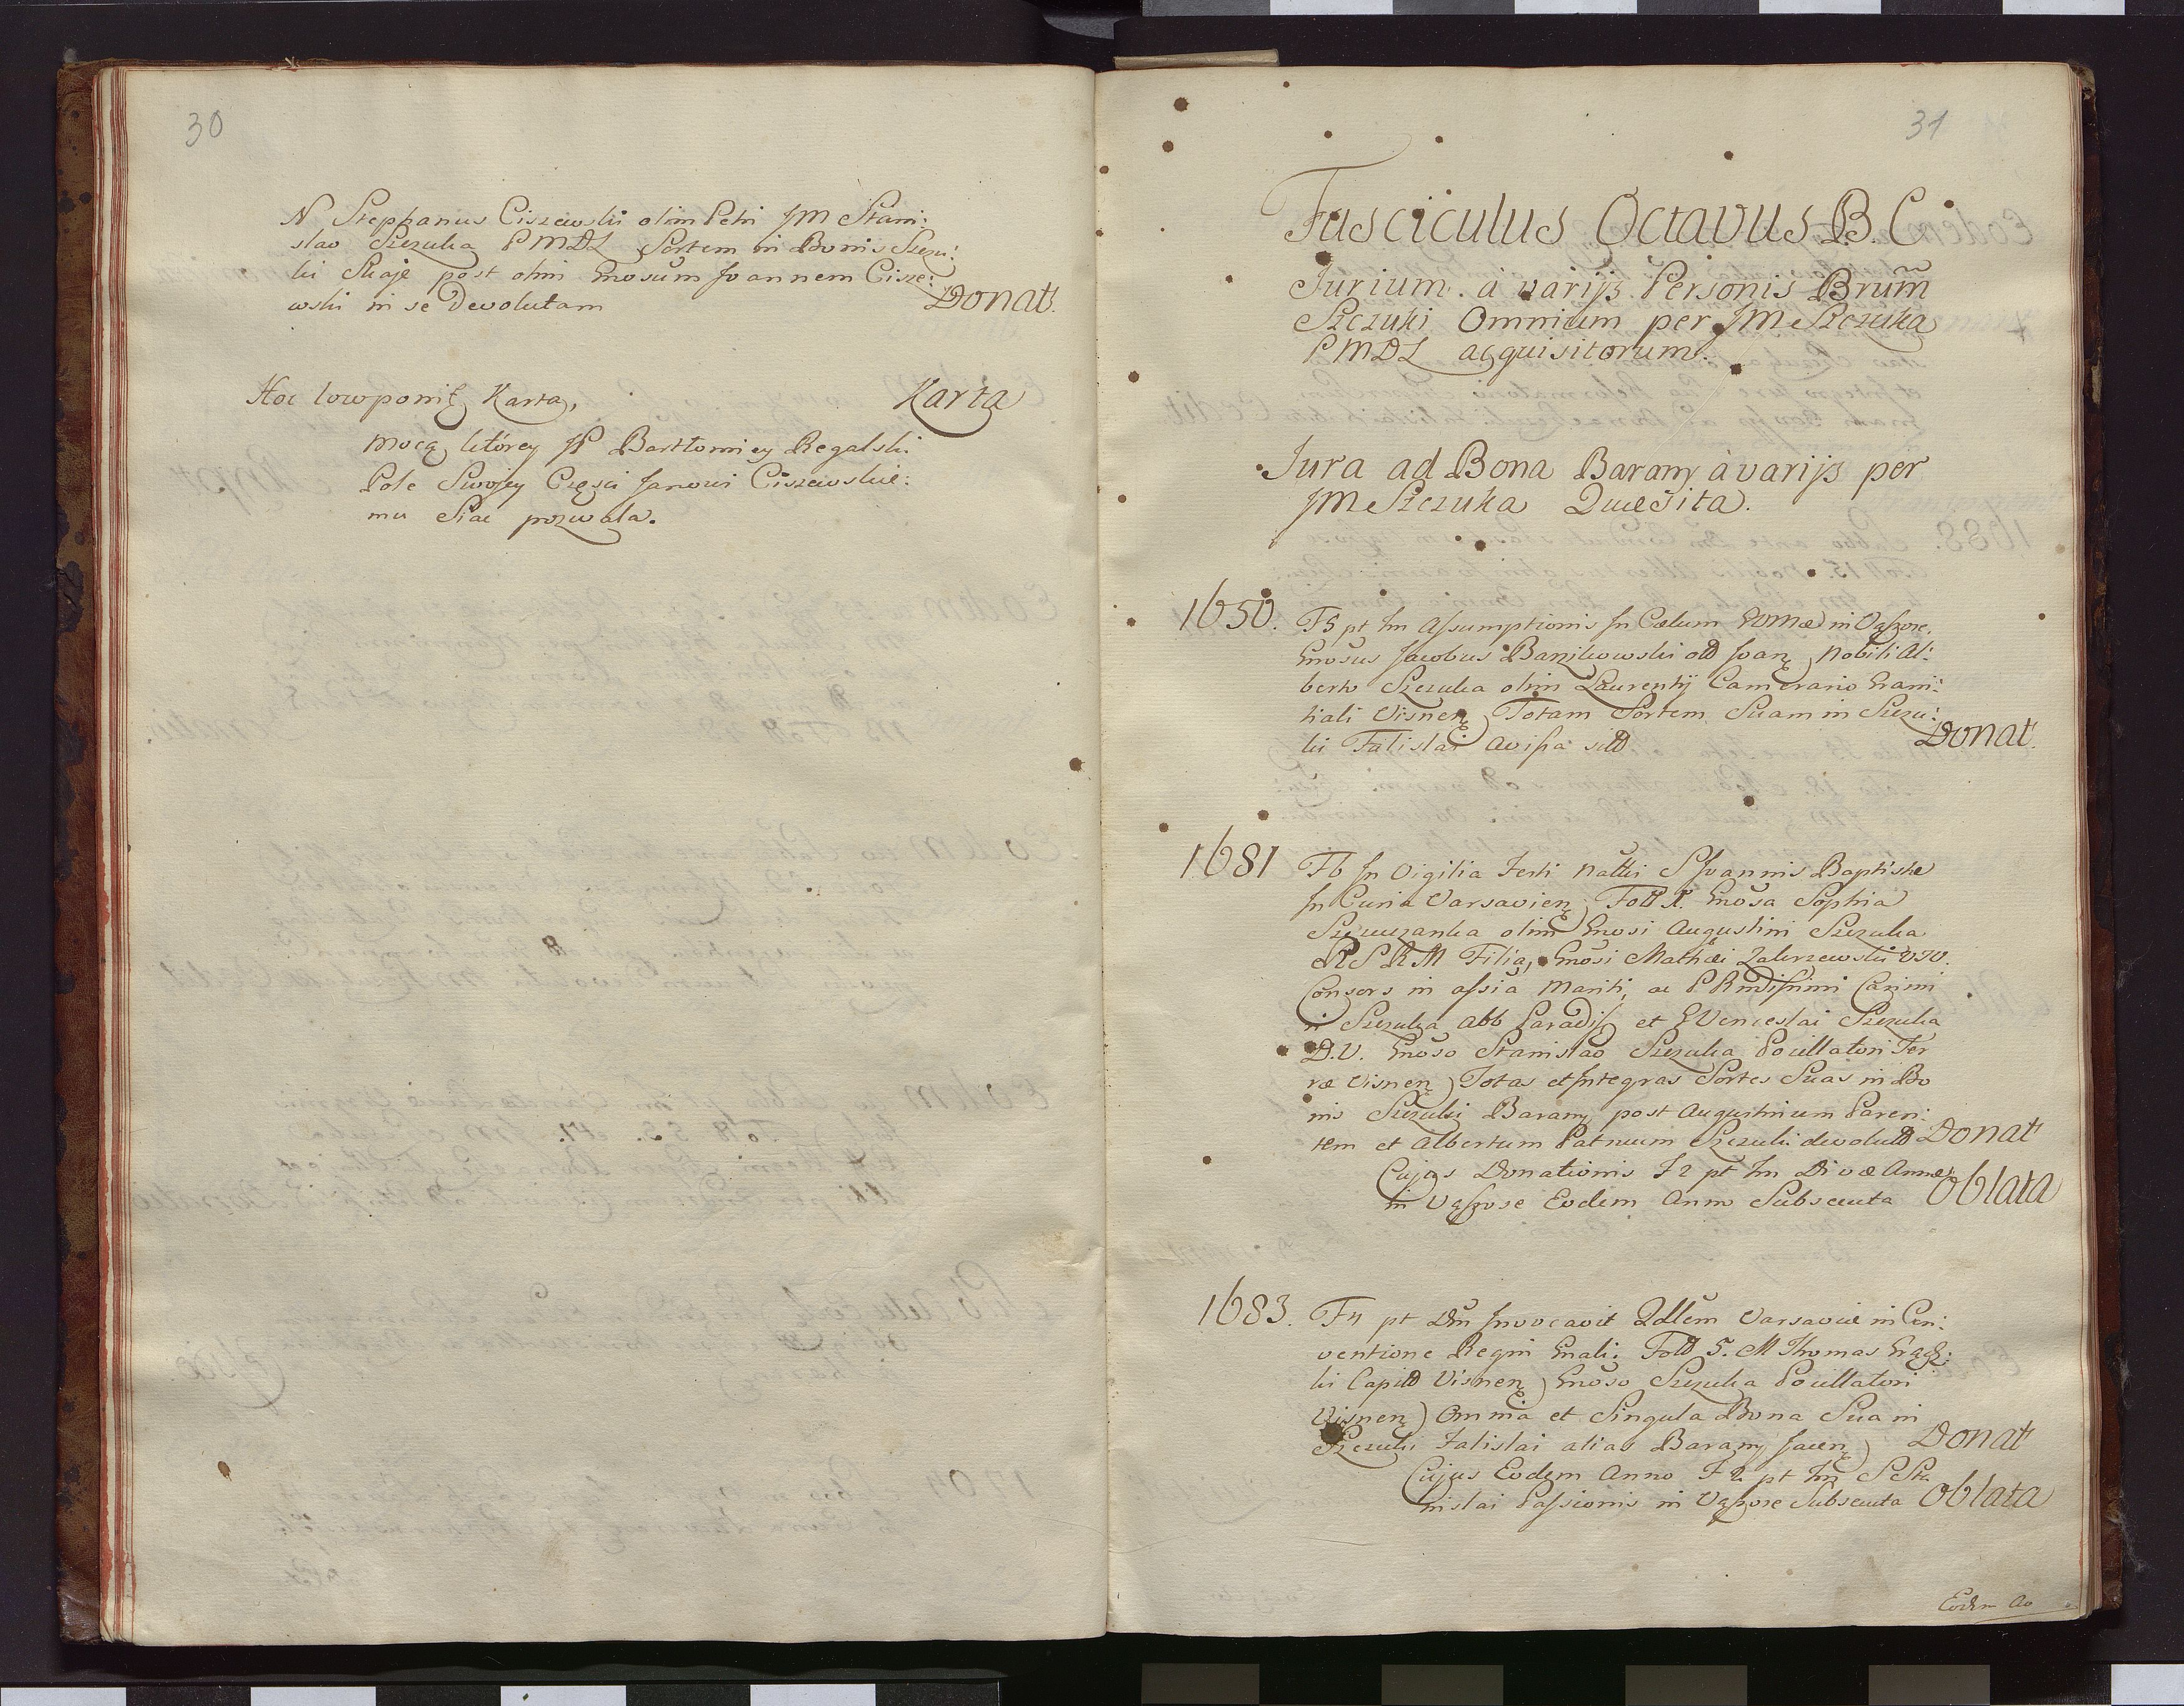 30
N Stephanus Ciszewski olim Petri JM Stani:
slao Szczuka PMDL Sortem in Bonis Szczu:
ki Skaje post olim Gnosum Joannem Cisze:
wski in se Devolutam Donat.
Hoc loco ponit Karta, Karta
mocą ktorey JP Bartłomiey Regalski
Pole Swojey Części Janowi Ciszewskie:
mu Siac pozwala.
31
Fasciculus Octavus B. C
Jurium à varijs Personis Brum
Szczuki Omnium per JM Szczuka
PMDL acquisitorum.
Jura ad Bona Barany à varijs per
JM Szczuka Quæsita.
1650. F5 pt fm Assumptionis In Cælum in Vąsose.
Gnosus Jacobus Barzikowski old Joan Nobili Al:
berto Szczuka olim Laurentij Camerario Grani:
tiali Visnen Totam Sortem Suam in Szczu:
ki Falislai Donat.
1681 Fb In Vigilia Festi Nattis S Joannis Baptistæ
In Curia Varsavien Foll Gnosa Sophia
Szczuczanka olim Gnosi Augustini Szczuka
RSRM Filia, Gnosi Mathæi Zakrzewski
Consors in assia Mariti, ac PRndissimi Casimi
ri Szczuka Abb Paradis et GVenceslai Szczuka
D.V. Gnoso Stanislao Szczuka Pocillatori Ter
ræ Visnen Totas et Integras Sortes Suas in Bo
nis Szczuki Barany post Augustinum Paren:
tem et Albertum Patruum Szczuki Donat
Cujus Donationis F2 pt fm Divæ Annæ
in Vąsose Eodem Anno Subsecuta Oblata
1683. F4 pt Dm Invocavit Qdlem Varsaviæ in Con:
ventione Regni Gnali. Foll 5. M Thomas
ki Visnen Gnoso Szczuka Pocillatori
Visnen Omnia et Singula Bona Sua in
Szczuki Falislai alias Barany Jacen Donat
Cujus Eodem Anno F2 pt fm S Sta
nislai Passionis in Vąsose Subsecuta Oblata
Eodem Ao